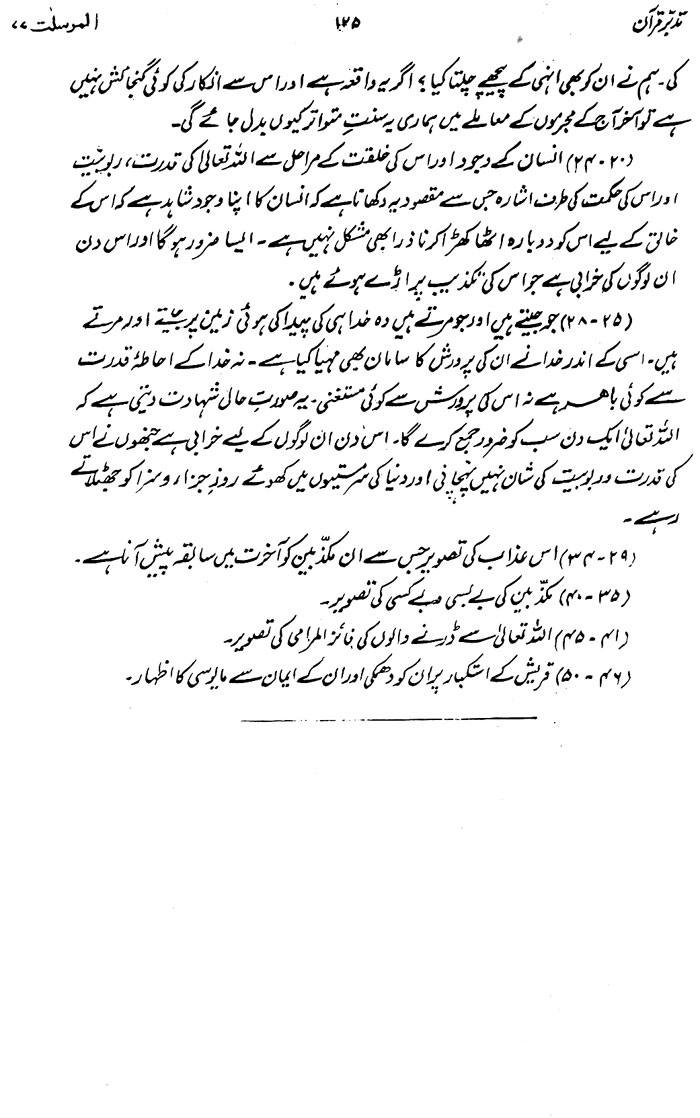 تدبّرِ قرآن ۱۲۵ المرسلٰت ۷۷
کی۔ ہم نے ان کو بھی انہی کے پیچھے چلتا کیا؟ اگر یہ واقعہ ہے اور اس سے انکار کی کوئی گنجائش نہیں
ہے تو آخر آج کے مجرموں کے معاملے میں ہماری یہ سنتِ متواتر کیوں بدل جائے گی۔
(۲۰-۲۴) انسان کے وجود اور اس کی خلقت کے مراحل سے اللہ تعالیٰ کی قدرت، ربوبیّت
اور اس کی حکمت کی طرف اشارہ جس سے مقصود یہ دکھانا ہے کہ انسان کا اپنا وجود شاہد ہے کہ اس کے
خالق کے لیے اس کو دوبارہ اٹھا کھڑا کرنا ذرا بھی مشکل نہیں ہے۔ ایسا ضرور ہو گا اور اس دن
ان لوگوں کی خرابی ہے جو اس کی تکذیب پر اڑے ہوئے ہیں۔
(۲۵-۲۸) جو جیتے ہیں اور جو مرتے ہیں وہ خدا ہی کی پیدا کی ہوئی زمین پر جیتے اور مرتے
ہیں۔ اسی کے اندر خدا نے ان کی پرورش کا سامان بھی مہیا کیا ہے۔ نہ خدا کے احاطۂ قدرت
سے کوئی باھر ہے نہ اس کی پرورش سے کوئی مستغنی۔ یہ صورتِ حال شہادت دیتی ہے کہ
اللہ تعالیٰ ایک دن سب کو ضرور جمع کرے گا۔ اس دن ان لوگوں کے لیے خرابی ہے جنھوں نے اس
کی قدرت و ربوبیت کی شان نہیں پہچانی اور دنیا کی سرمستیوں میں کھوئے روزِ جزاء و سزا کو جھٹلاتے
رہے۔
(۲۹-۳۴) اس عذاب کی تصویر جس سے ان مکذّبین کو آخرت میں سابقہ پیش آنا ہے۔
(۳۵-۴۰) مکذّبین کی بے بسی و بے کسی کی تصویر۔
(۴۱-۴۵) اللہ تعالیٰ سے ڈرنے والوں کی فائز المرامی کی تصویر۔
(۴۶-۵۰) قریش کے استکبار پر ان کو دھمکی اور ان کے ایمان سے مایوسی کا اظہار۔